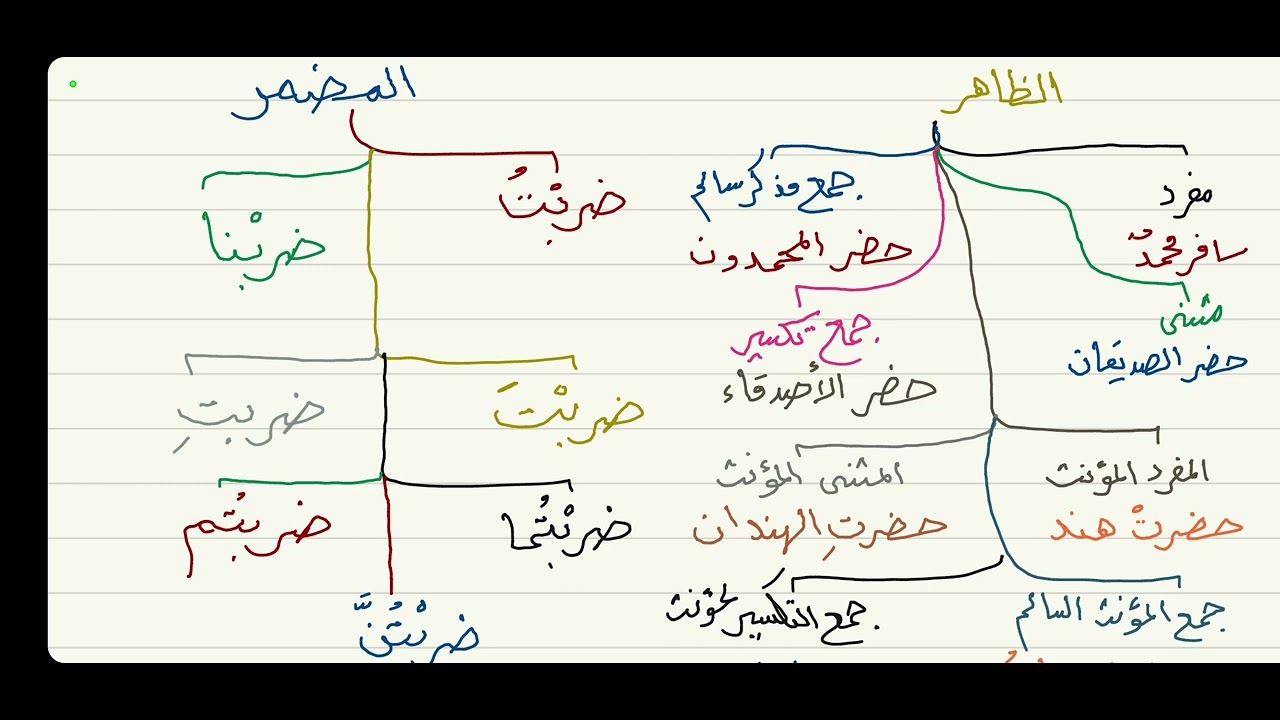 الظاهر
مفرد
سافر محمدٌ
مثنى
حضر الصديقان
جمع مذكر سالم
حضر المحمدون
جمع تكسير
حضر الأصدقاء
المفرد المؤنث
حضرتْ هند
المثنى المؤنث
حضرتِ الهندان
جمع المؤنث السالم
جمع التكسير لمؤنث
المضمر
ضربْتُ
ضربْنا
ضربْتَ
ضربتِ
ضربْتُما
ضربتُم
ضربْتُنَّ